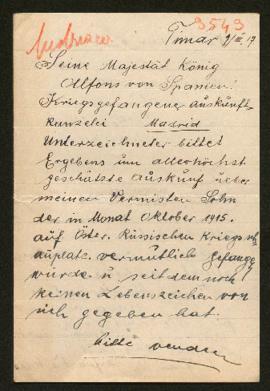 3543
Seine Majestät König
Alfons von Spanien.
Kriegsgefangener Auskunft-
kanzelei Madrid
Unterzeichneter bittet
Ergebens um allerhöchst
geschätzte auskunf über
meinen Vermisten Sohn
der in Monat Oktober 1915.
auf Öster. Russischen Kriegssch
auplatz. vermutlich gefange
wurde u seit dem noch
keinen Lebenszeichen von
sich gegeben hat.
bitte